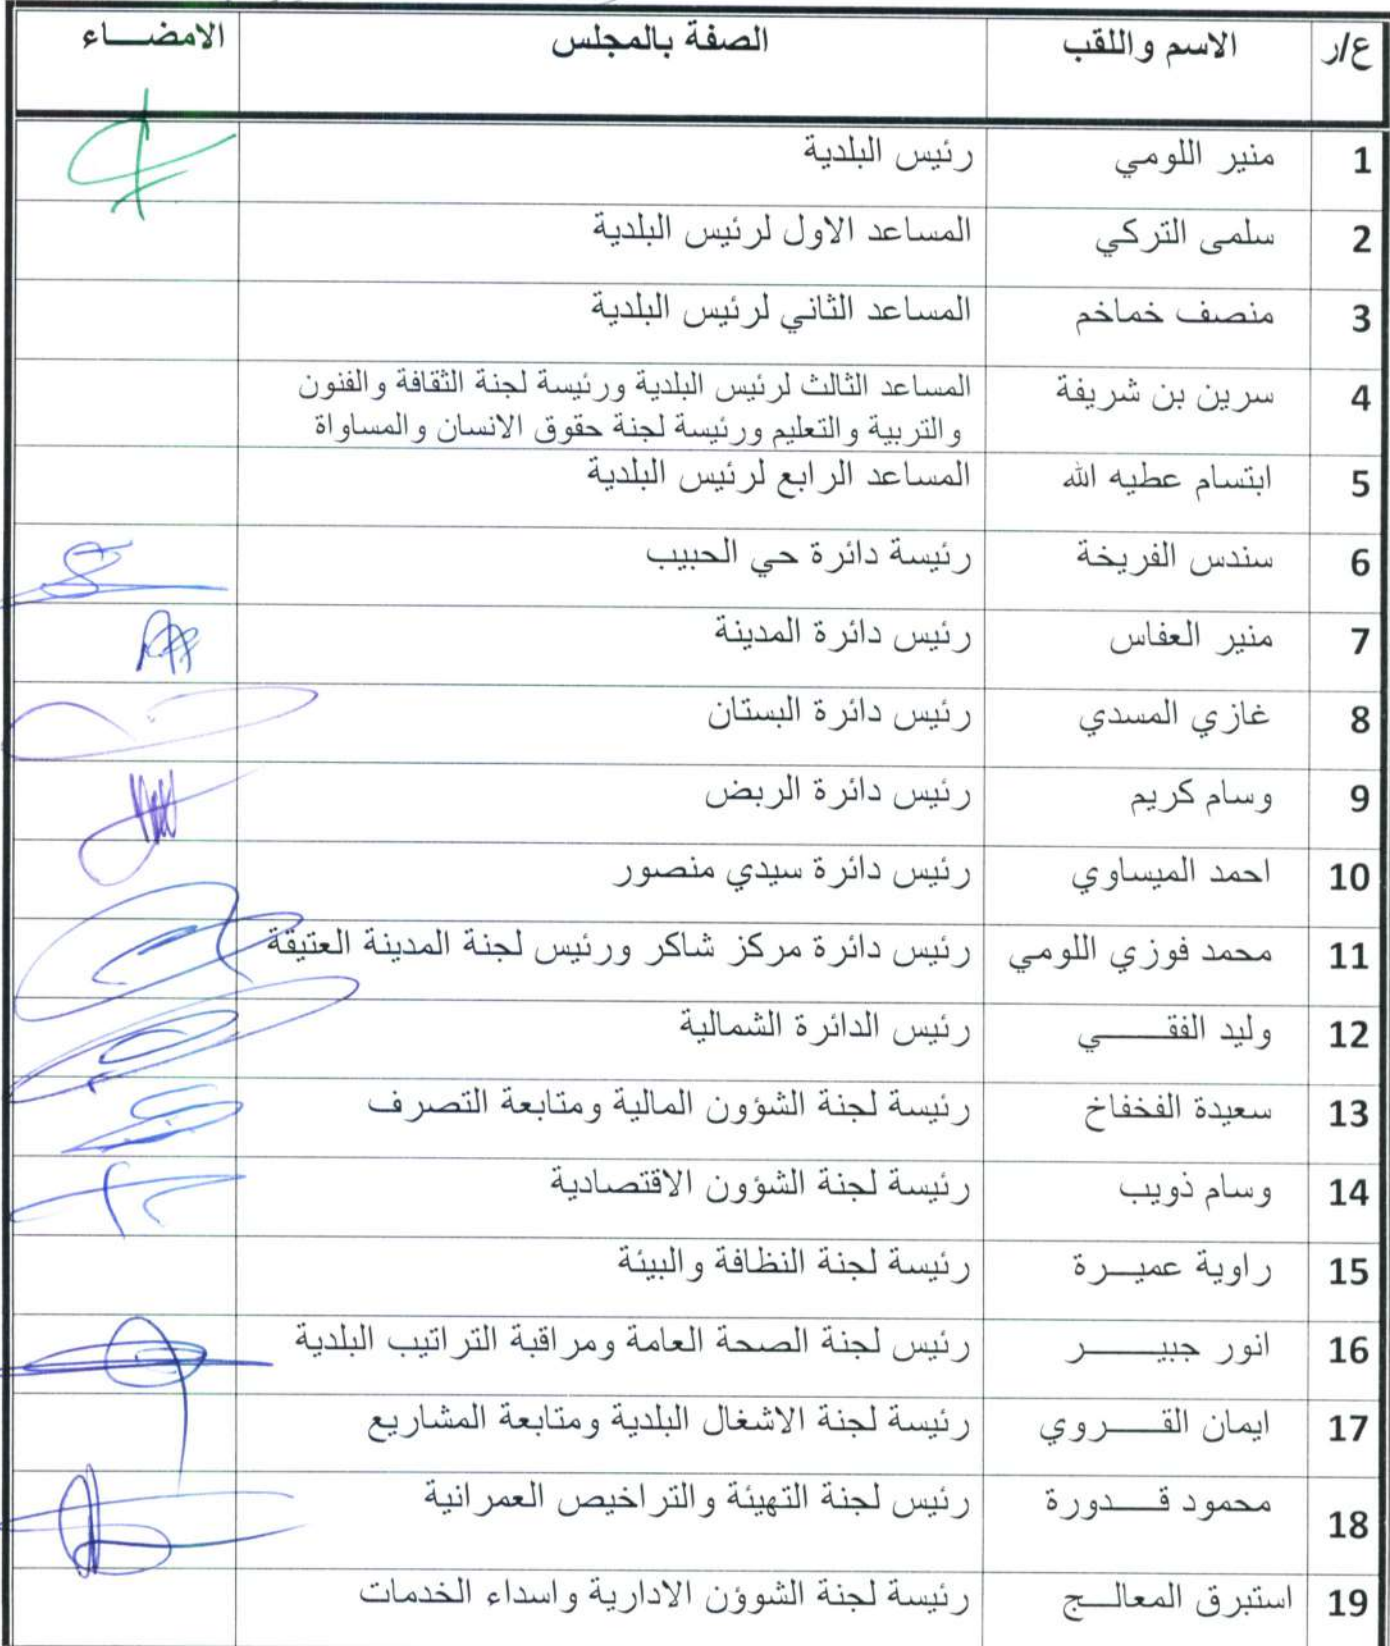 ع/ر الاسم واللقب الصفة بالمجلس الامضـــاء
1 منير اللومي رئيس البلدية
2 سلمى التركي المساعد الاول لرئيس البلدية
3 منصف خماخم المساعد الثاني لرئيس البلدية
4 سرين بن شريفة المساعد الثالث لرئيس البلدية ورئيسة لجنة الثقافة والفنون
والتربية والتعليم ورئيسة لجنة حقوق الانسان والمساواة
5 ابتسام عطيه الله المساعد الرابع لرئيس البلدية
6 سندس الفريخة رئيسة دائرة حي الحبيب
7 منير العفاس رئيس دائرة المدينة
8 غازي المسدي رئيس دائرة البستان
9 وسام كريم رئيس دائرة الربض
10 احمد الميساوي رئيس دائرة سيدي منصور
11 محمد فوزي اللومي رئيس دائرة مركز شاكر ورئيس لجنة المدينة العتيقة
12 وليد الفقـــــي رئيس الدائرة الشمالية
13 سعيدة الفخفاخ رئيسة لجنة الشؤون المالية ومتابعة التصرف
14 وسام ذويب رئيسة لجنة الشؤون الاقتصادية
15 راوية عميـــرة رئيسة لجنة النظافة والبيئة
16 انور جبيـــــر رئيس لجنة الصحة العامة ومراقبة التراتيب البلدية
17 ايمان القـــــروي رئيسة لجنة الاشغال البلدية ومتابعة المشاريع
18 محمود قـــــدورة رئيس لجنة التهيئة والتراخيص العمرانية
19 استبرق المعالـــج رئيسة لجنة الشوؤن الادارية واسداء الخدمات